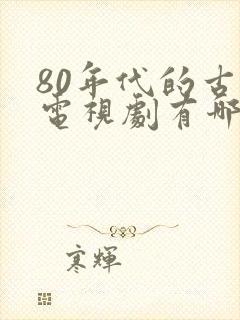 80年代的古
電視劇有哪
寒輝